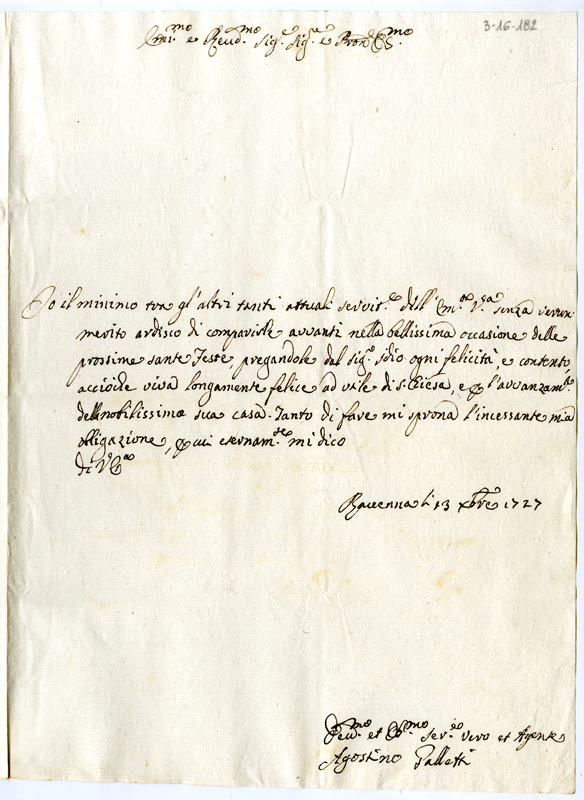 3-16-182
Em:mo e Reud:mo Sig:e Sig:e e Pron Cs:mo
Io il minimo tra gl'altri tanti attuali servit:e dell' Em:za V:ra senza verun
merito ardisco di comparirle avvanti nella bellissima occasione delle
prossime sante Feste, pregandole dal Sig:e Idio ogni felicità, e contento,
acciòche viva longamente felice ad utile di S. Chiesa, e p l'avvanzam:to
della nobilissima sua casa. Tanto di fare mi sprona l'incessante mia
obligazione, p cui eternam:te mi dico
di V Em:za
Ravenna li 13 Xbre 1727
Deu:mo et Ob:mo Ser:re vero et Agente
Agostino Galletti